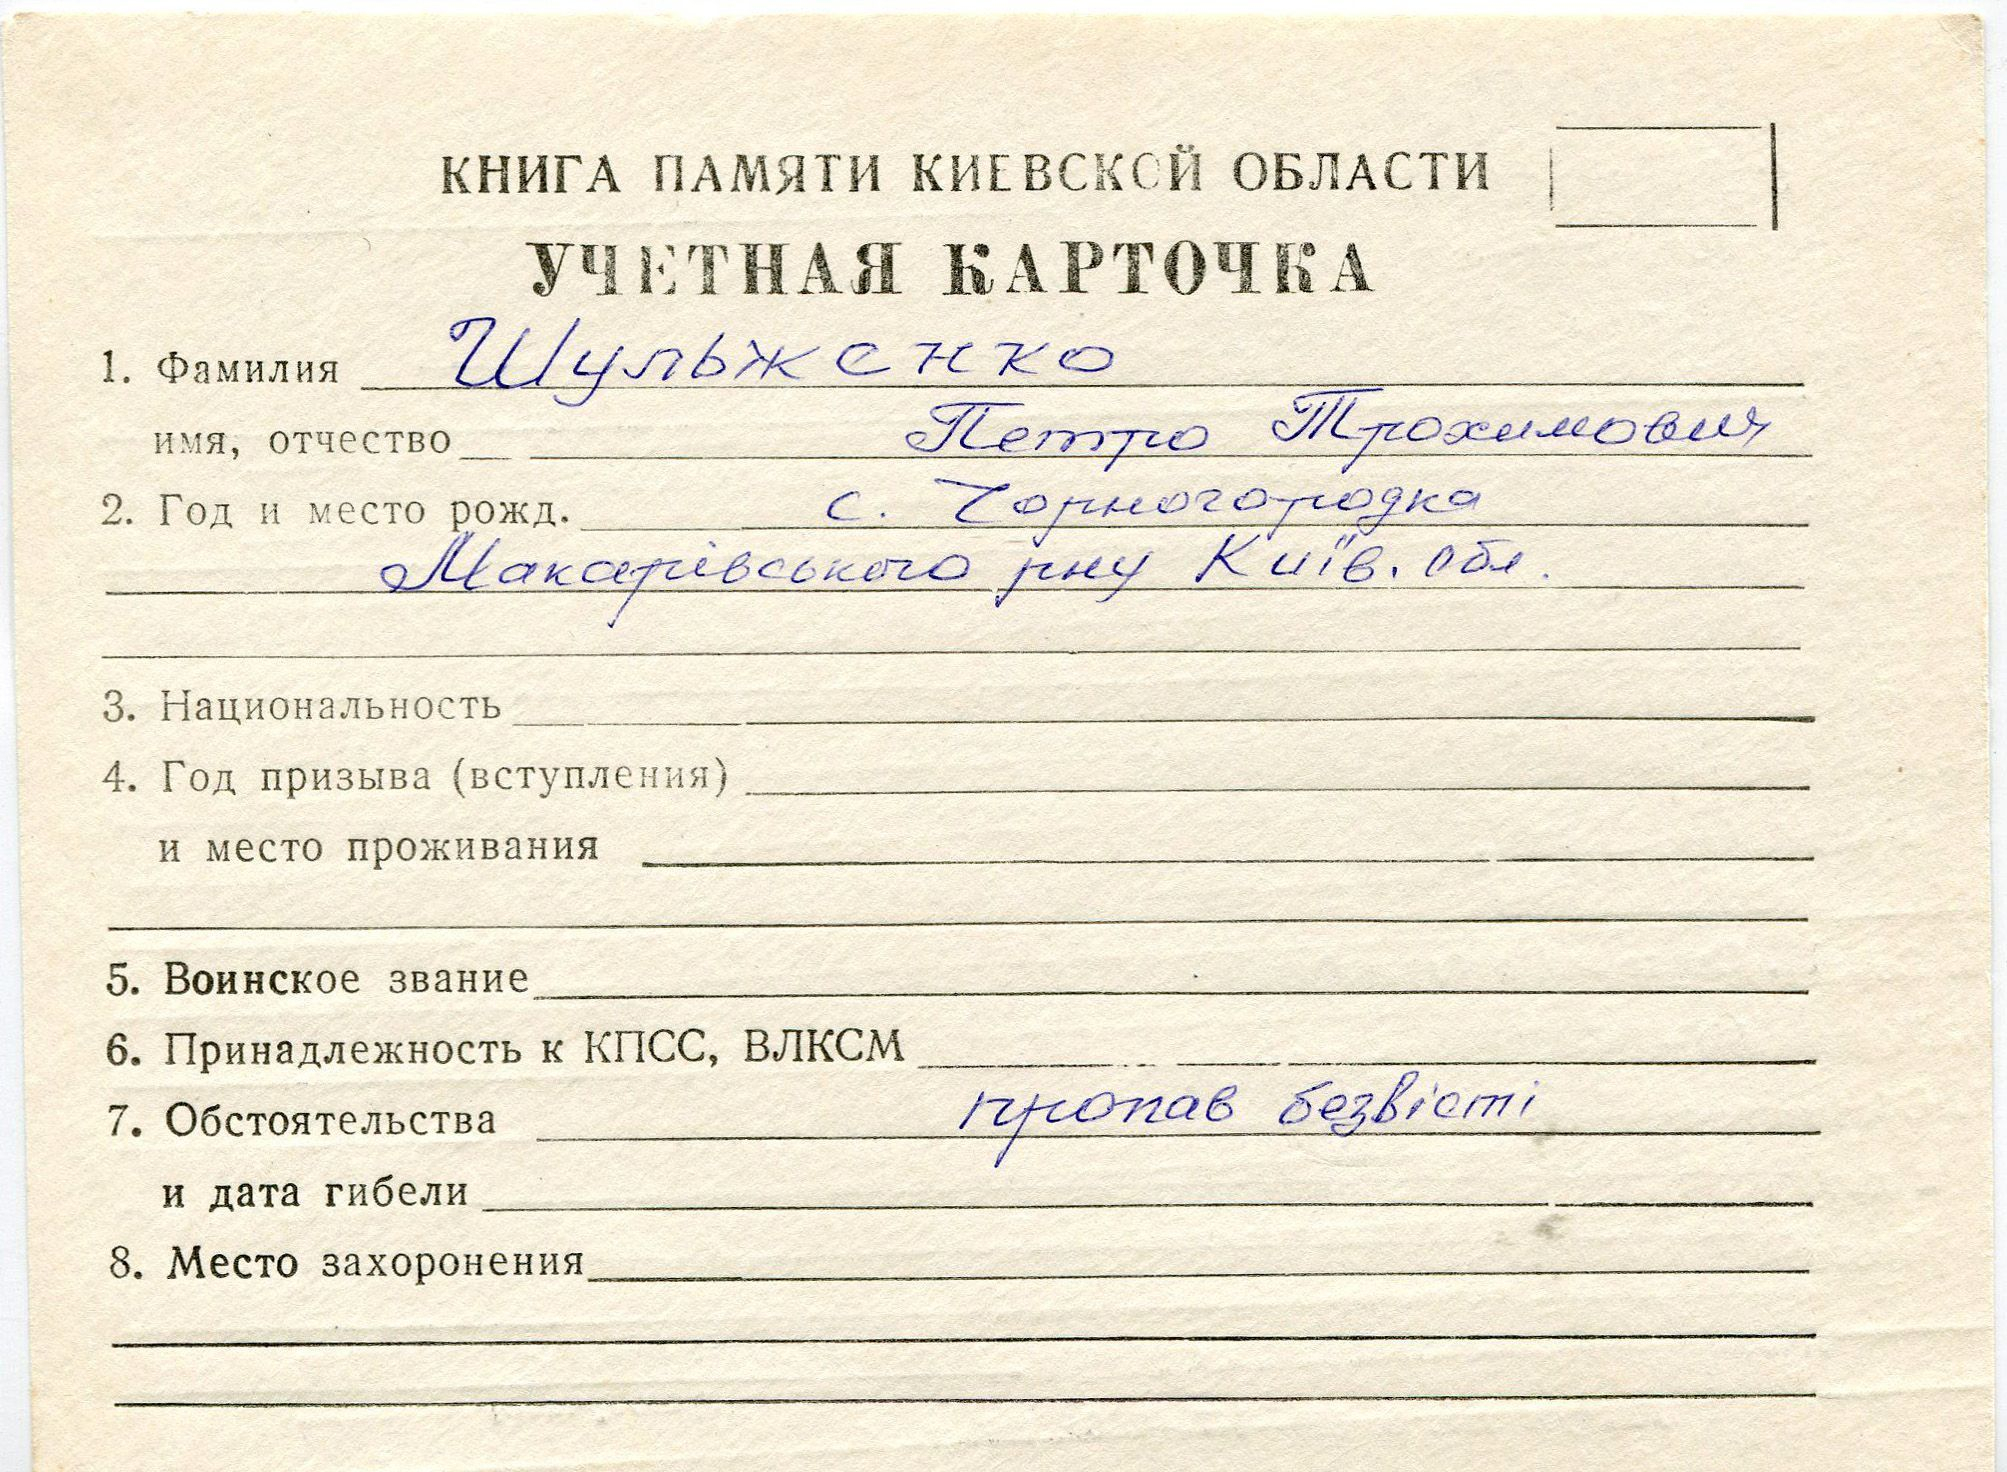 КНИГА ПАМЯТИ КИЕВСКОЙ ОБЛАСТИ
УЧЕТНАЯ КАРТОЧКА
1. Фамилия Шульженко
имя, отчество Петро Трохимович
2. Год и место рожд. с. Чорногородка
Макарівського рну Київ. обл.
3. Национальность
4. Год призыва (вступления)
и место проживания
5. Воинское звание
6. Принадлежность к КПСС, ВЛКСМ
7. Обстоятельства пропав безвісті
и дата гибели
8. Место захоронения